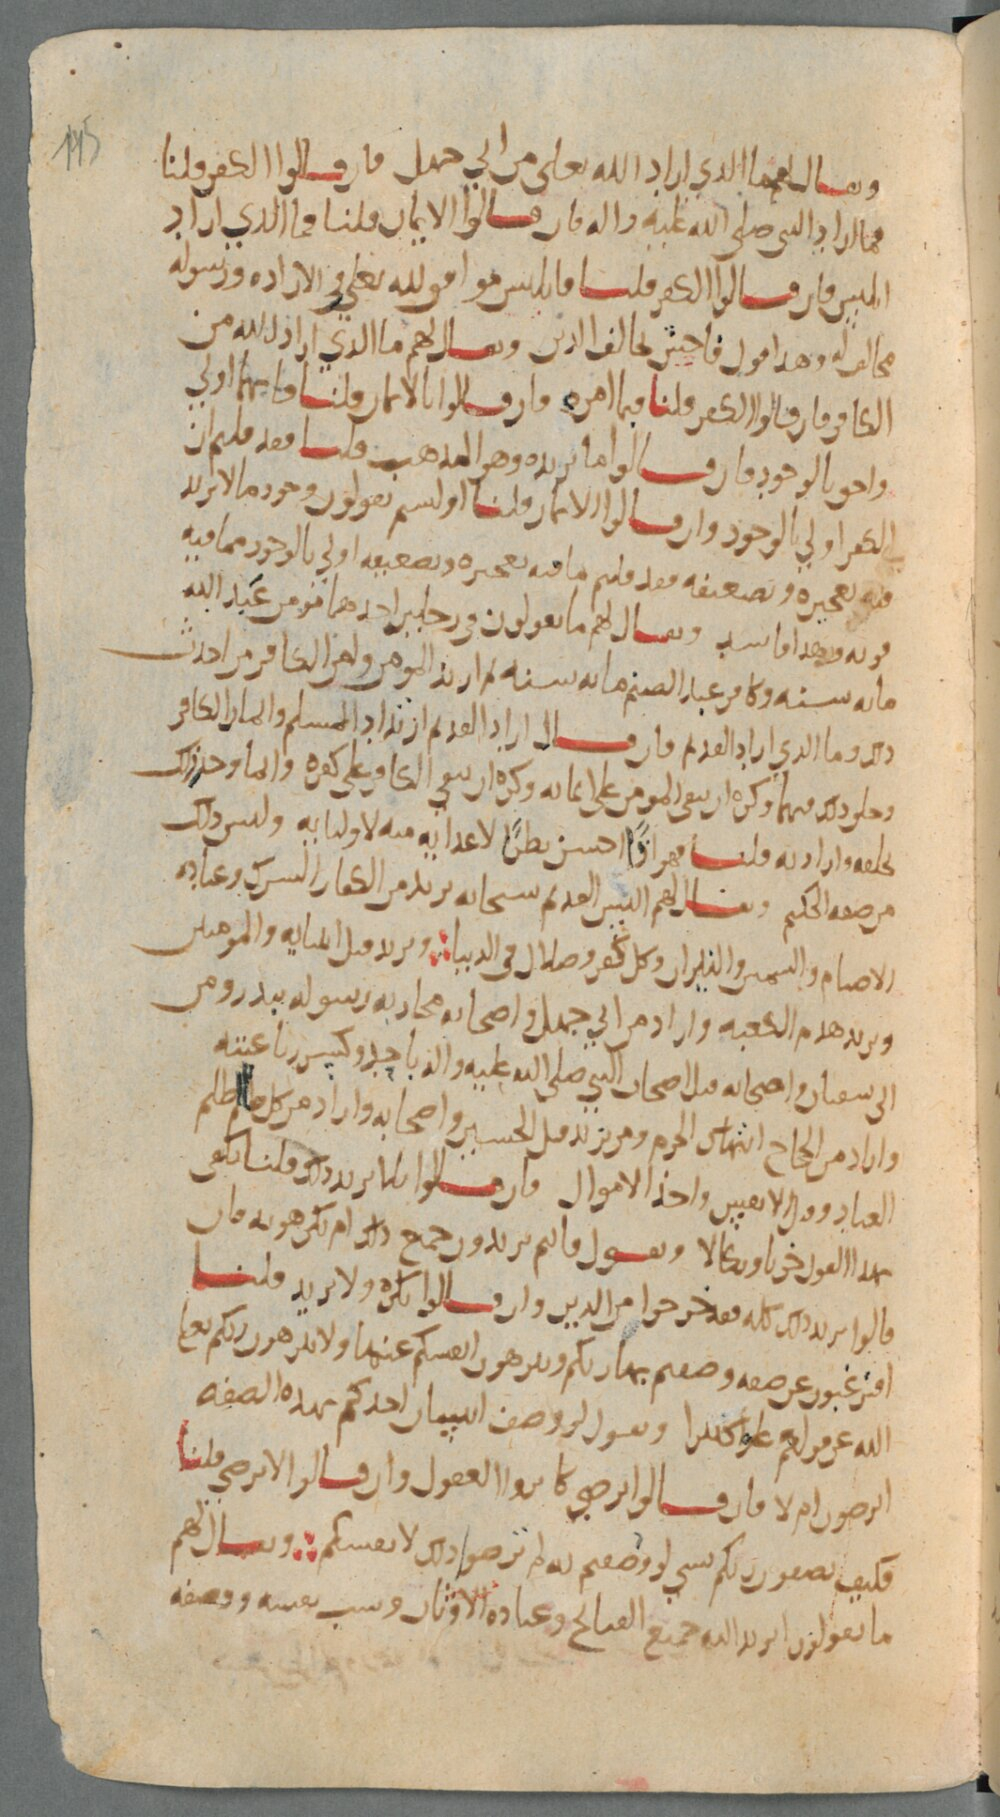 ١٢٥
ويقال لهم ما الذي اراد الله تعلى من ابي جهل فان قالوا الكفر قلنا
فما اراد النبي صلى الله عليه واله فان قالوا الايمان قلنا فما الذي اراد
ابليس فان قالوا الكفر قلنا فابليس موافق لله تعلى في الاراده ورسوله
مخالف له وهذا قول فاحش يخالف الدين ويقال لهم ما الذي اراد الله من
الكافر فان قالوا الكفر قلنا فبما امره فان قالوا بالايمان قلنا فايهما اولى
واحق بالوجود فان قالوا ما يريده وهو المذهب قلنا فقد قلتم ان
الكفر اولى بالوجود وان قالوا الايمان قلنا اولستم تقولون وجود ما لا يريد
فيه تعجيزه وتضعيفه فقد قلتم ما فيه تعجيزه وتضعيفه اولى بالوجود مما فيه
قوته وهذا فاسد ويقال لهم ما تقولون في رجلين احدهما مومن عبد الله
مايه سنه وكافر عبد الصنم مايه سنه ثم ارتد المومن وامن الكافر من احدث
ذلك وما الذي اراد القديم فان قال اراد القديم ارتداد المسلم وايمان الكافر
وخلق ذلك فيهما وكره ان يبقى المومن على ايمانه وكره ان يبقى الكافر على كفره وانما وجد ذلك
بخلقه وارادته قلنا فهو اذًا احسن نظرًا لاعدايه منه لاوليايه وليس ذلك
من صفه الحكيم ويقال لهم اليس القديم سبحانه يريد من الكفار الشرك وعباده
الاصنام والشمس والنيران وكل كفر وضلال في الدنيا ويريد قتل انبيايه والمومنين
ويريد هدم الكعبه واراد من ابي جهل واصحابه محاربه رسوله ببدر ومن
ابي سفيان واصحابه قتل اصحاب النبي صلى الله عليه واله باحد وكسر رباعيته
واراد من الحجاج انتهاك الحرم ومن يزيد قتل الحسين واصحابه واراد من كل ظالم ظلم
العباد وقتل الانفس واخذ الاموال فان قالوا بلى يريد ذلك قلنا يكفى
بهذا القول خزيا ونكالا ويقول فانتم تريدون جميع ذلك ام تكرهونه فان
قالوا نريد ذلك كله فقد خرجوا من الدين وان قالوا نكره ولا نريد قلنا
افترغبون عن صفه وصفتم بها ربكم وتنزهون انفسكم عنها ولا تنزهون ربكم تعلى
الله عن قولهم علوا كبيرا ويقول لو وصف انسان احدكم بهذه الصفه
اترضون ام لا فان قالوا نرضى كابروا العقول وان قالوا لا نرضى قلنا
فكيف تصفون ربكم بشي لو وصفتم به لم ترضوا ذلك لانفسكم ويقال لهم
ما تقولون ايريد الله جميع القبايح وعباده الاوثان وسب نفسه ووصفه